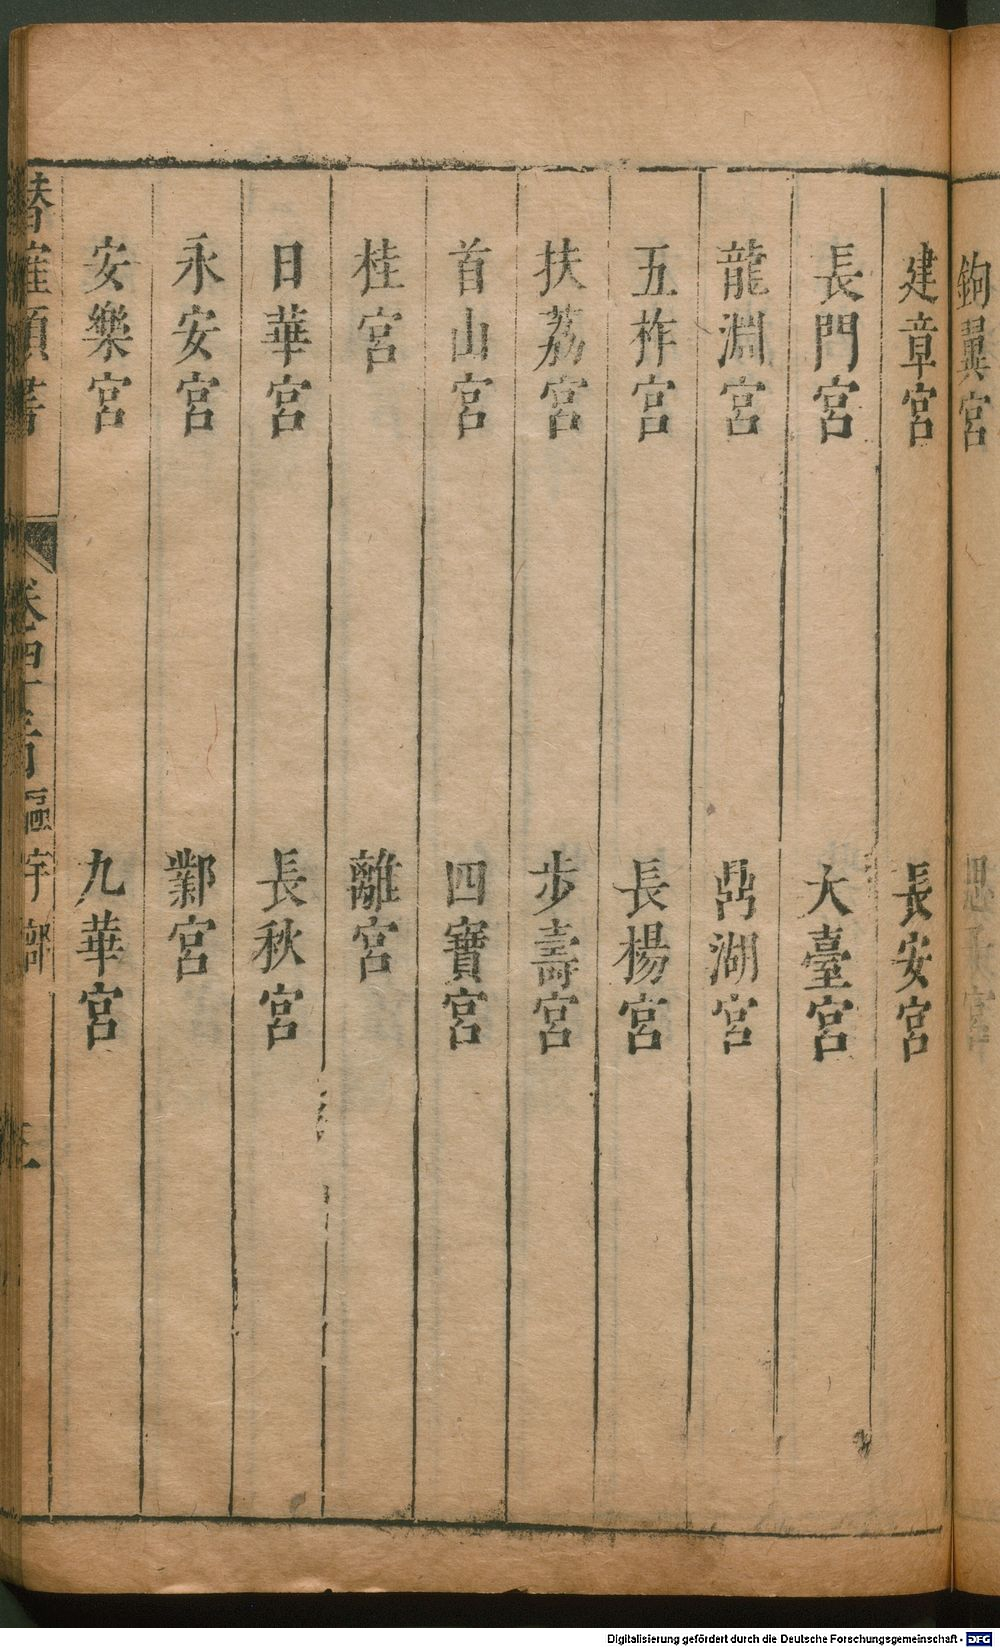 鉤翼宮
思子宮
建章宮
長安宮
長門宮
大臺宮
龍淵宮
鼎湖宮
五柞宮
長楊宮
扶荔宮
步壽宮
首山宮
四寶宮
桂宮
離宮
日華宮
長秋宮
永安宮
鄴宮
安樂宮
九華宮
卷四十 目 區宇部
Digitalisierung gefördert durch die Deutsche Forschungsgemeinschaft - DFG